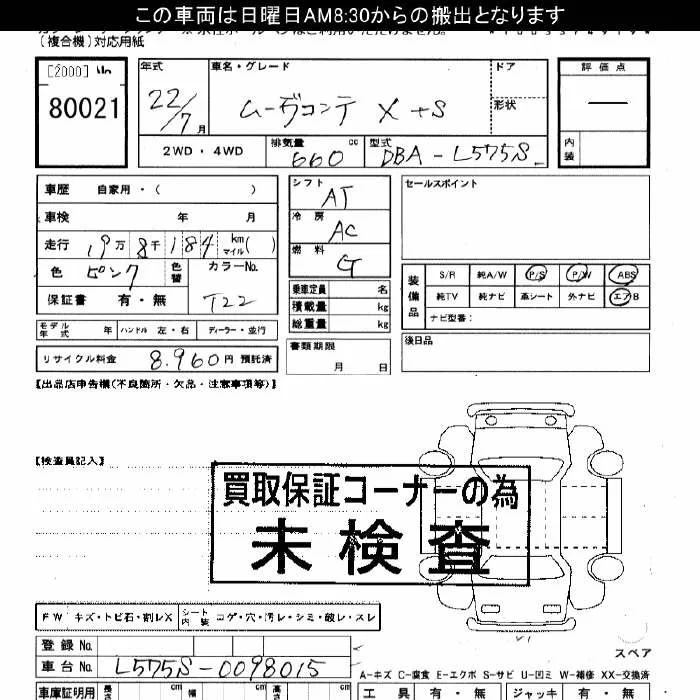 この車両は日曜日AM8:30からの搬出となります
(複合機)対応用紙
[2000]
80021
年式
22/7月
車名・グレード
ムーヴコンテ X +S
ドア
形状
評価点
—
内装
2WD・4WD
排気量 660 cc
型式 DBA-L575S
車歴 自家用・( )
車検 年 月
走行 19万8千184 km マイル( )
色 ピンク 色替 カラーNo. T22
保証書 有・無
シフト AT
冷房 AC
燃料 G
乗車定員 名
積載量 kg
総重量 kg
セールスポイント
装備品
S/R 純A/W P/S P/W ABS
純TV 純ナビ 革シート 外ナビ エアB
ナビ型番:
モデル年式 年 ハンドル 左・右 ディーラー・並行
リサイクル料金 8.960円 預託済
書類期限 月 日
後日品
【出品店申告欄(不良箇所・欠品・注意事項等)】
【検査員記入】
買取保証コーナーの為
未検査
FW キズ・トビ石・割レX シート内装 コゲ・穴・汚レ・シミ・破レ・スレ
スペア
登録No.
車台No. L575S-0098015
A-キズ C-腐食 E-エクボ S-サビ U-凹ミ W-補修 XX-交換済
車庫証明用 長さ cm 幅 cm 高さ cm
工具 有・無 ジャッキ 有・無